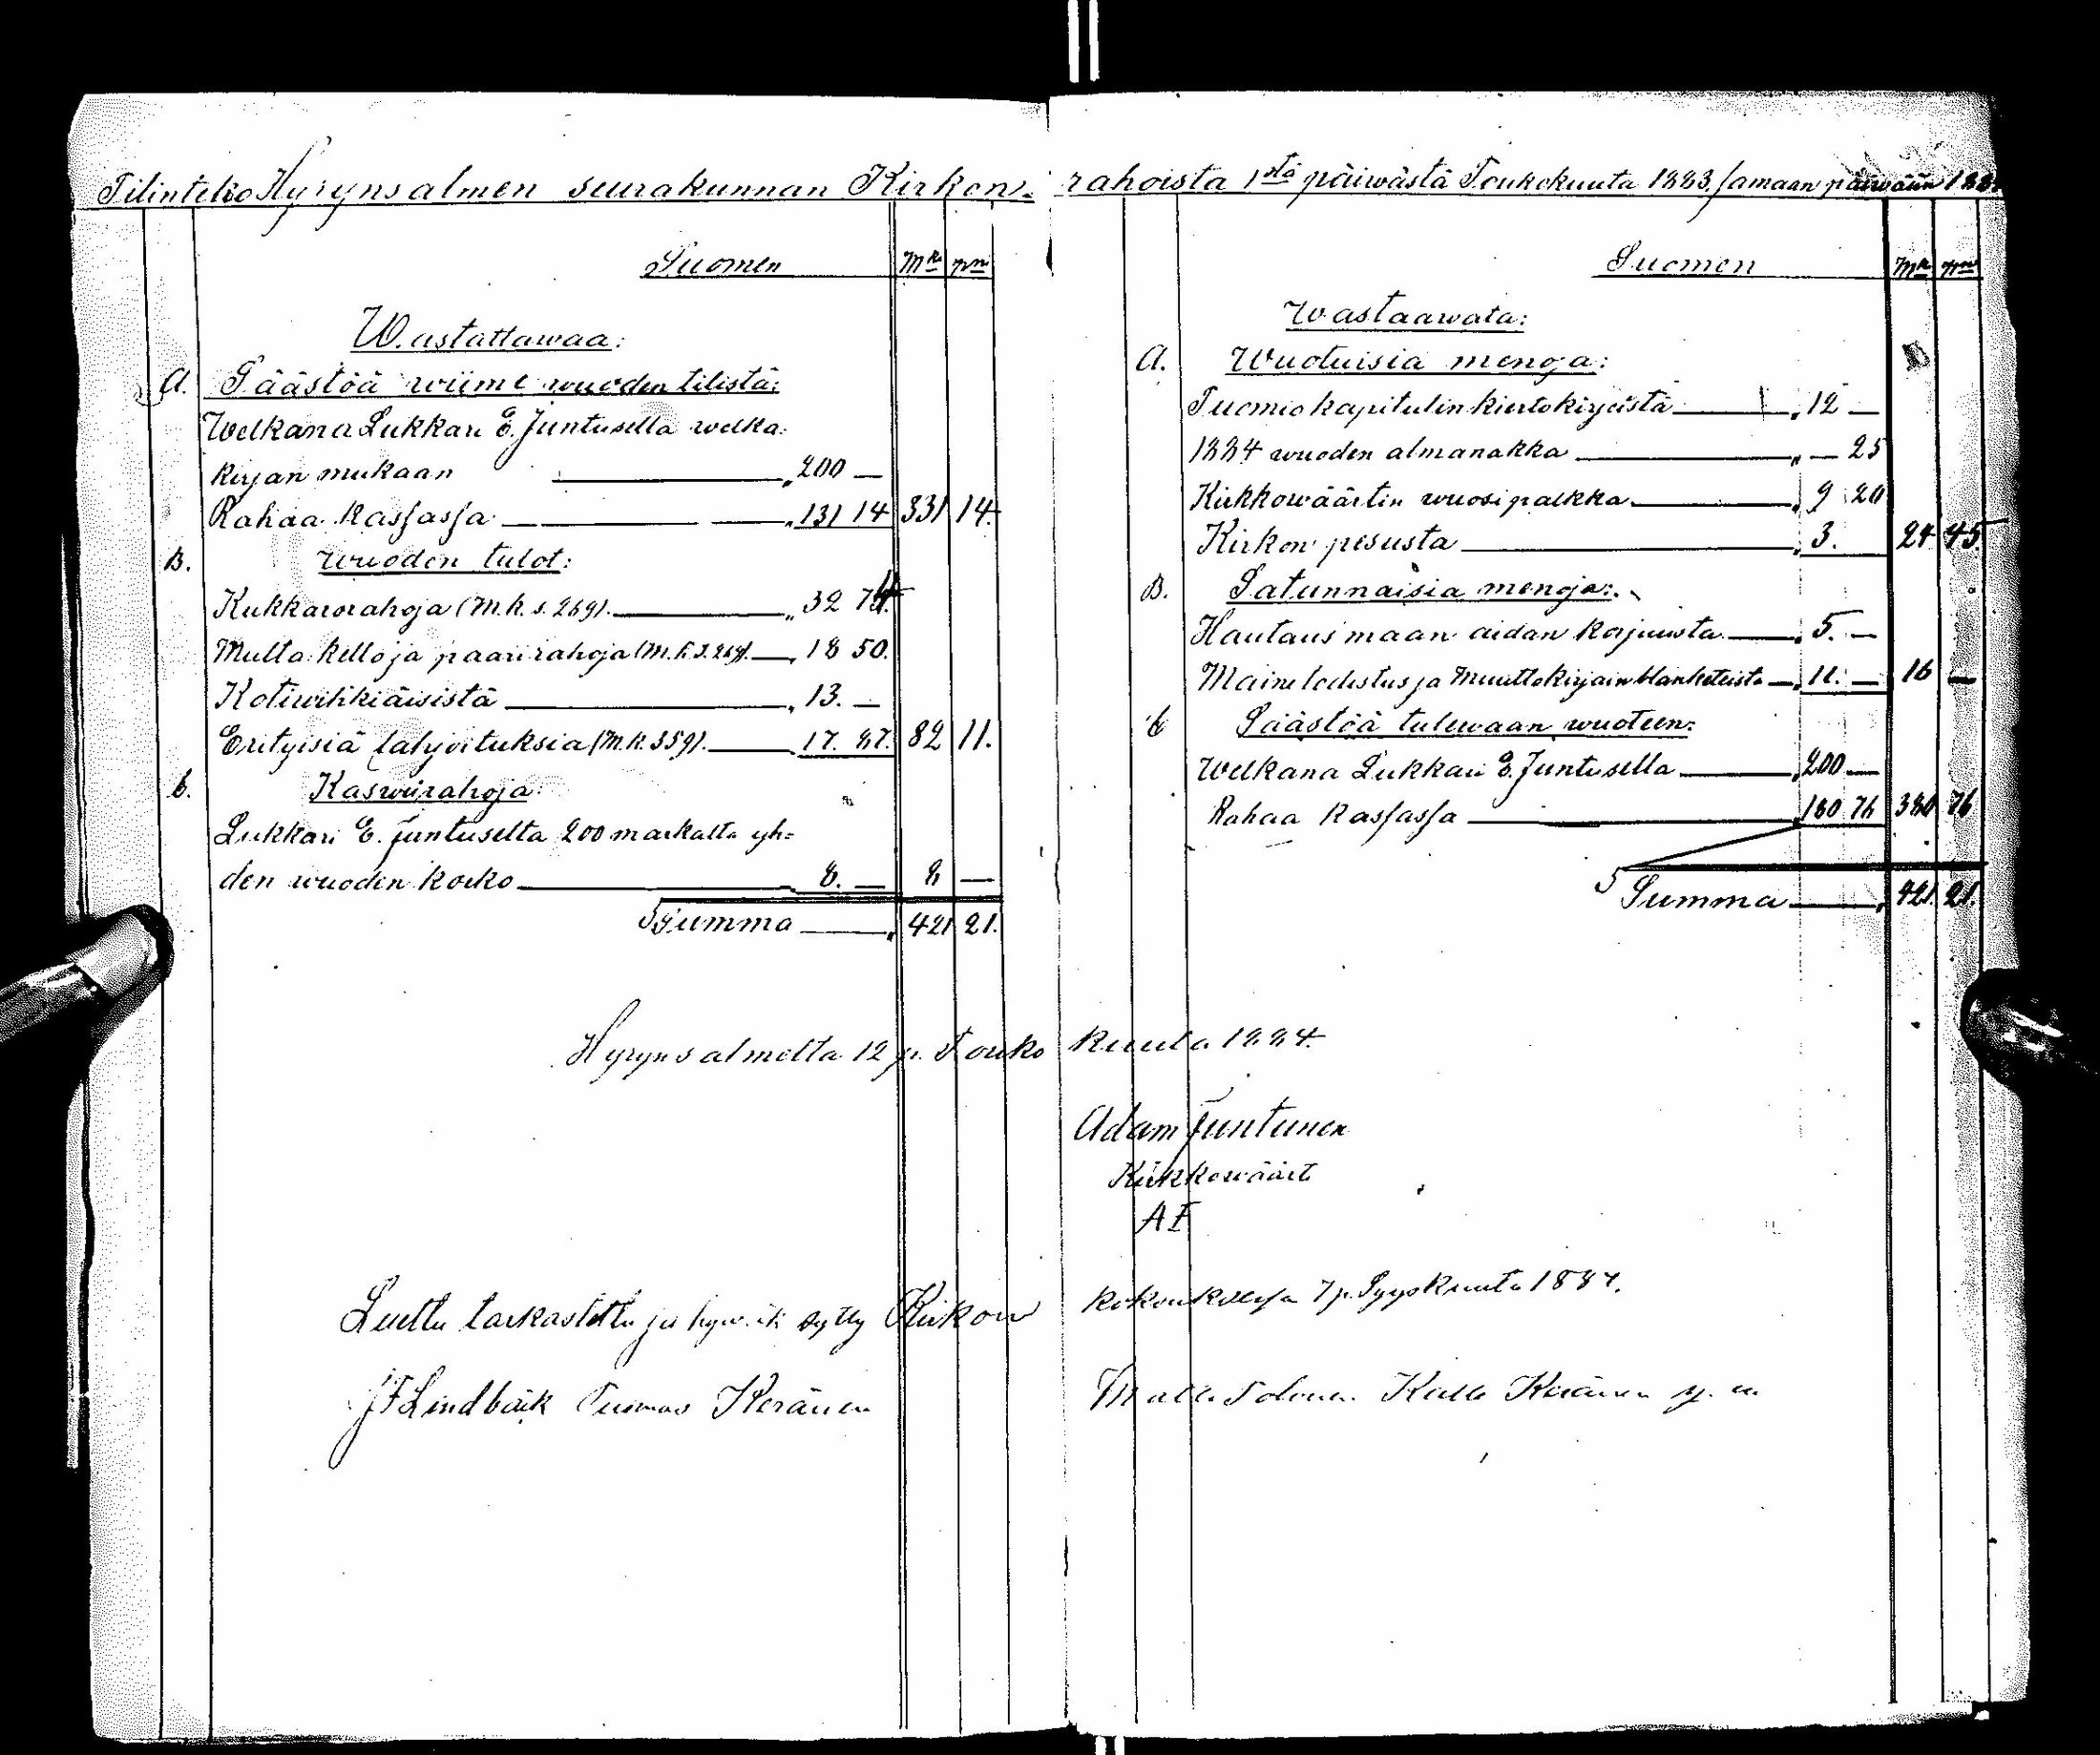 Tilinteko Hyrynsalmen seurakunnan Kirkon-rahoista 1stä päiwästä Toukokuuta 1883 samaan päiwään 188
Suomen Mk pni
Wastattawaa:
A. Säästöä wiime wuoden tilistä:
Welkana Lukkari E. Juntusella welka-
kirjan mukaan „ 200 —
Rahaa kassassa „ 131 14 331 14.
B. Wuoden tulot:
Kukkarorahoja (M.K. s. 269). „ 32 74.
Multa kello ja paari rahoja (M.K. s. 269). „ 18 50.
Kotiwihkiäisistä „ 13. —
Erityisiä lahjoituksia (M.K. 359). 17. 87. 82 11.
C. Kaswurahoja
Lukkari E. Juntuselta 200 markalta yh-
den wuoden korko 8. — 8 —
Summa „ 421 21.
Suomen Mk pni
Wastaawata:
A. Wuotuisia menoja:
Tuomiokapitulin kiertokirjeistä „ 12 —
1884 wuoden almanakka „ — 25
Kirkkowäärtin wuosipalkka „ 9 20
Kirkon pesusta „ 3. 24 45
B. Satunnaisia menoja:
Hautausmaan aidan korjuusta „ 5. —
Mainetodistus ja Muuttokirjain blanketeista „ 11. — 16 —
C Säästöä tulewaan wuoteen:
Welkana Lukkari E. Juntusella 200 —
Rahaa kassassa 180 76 380 76
Summa „ 421. 21.
Hyrynsalmelta 12 p. Toukokuuta 1884.
Adam Juntunen
Kirkkowäärt
Luettu tarkastettu ja Kirkonkokouksessa 7 p. Syyskuuta 1884.
JF Lindbäck Tuomas Keränen Kalle Keränen y. m